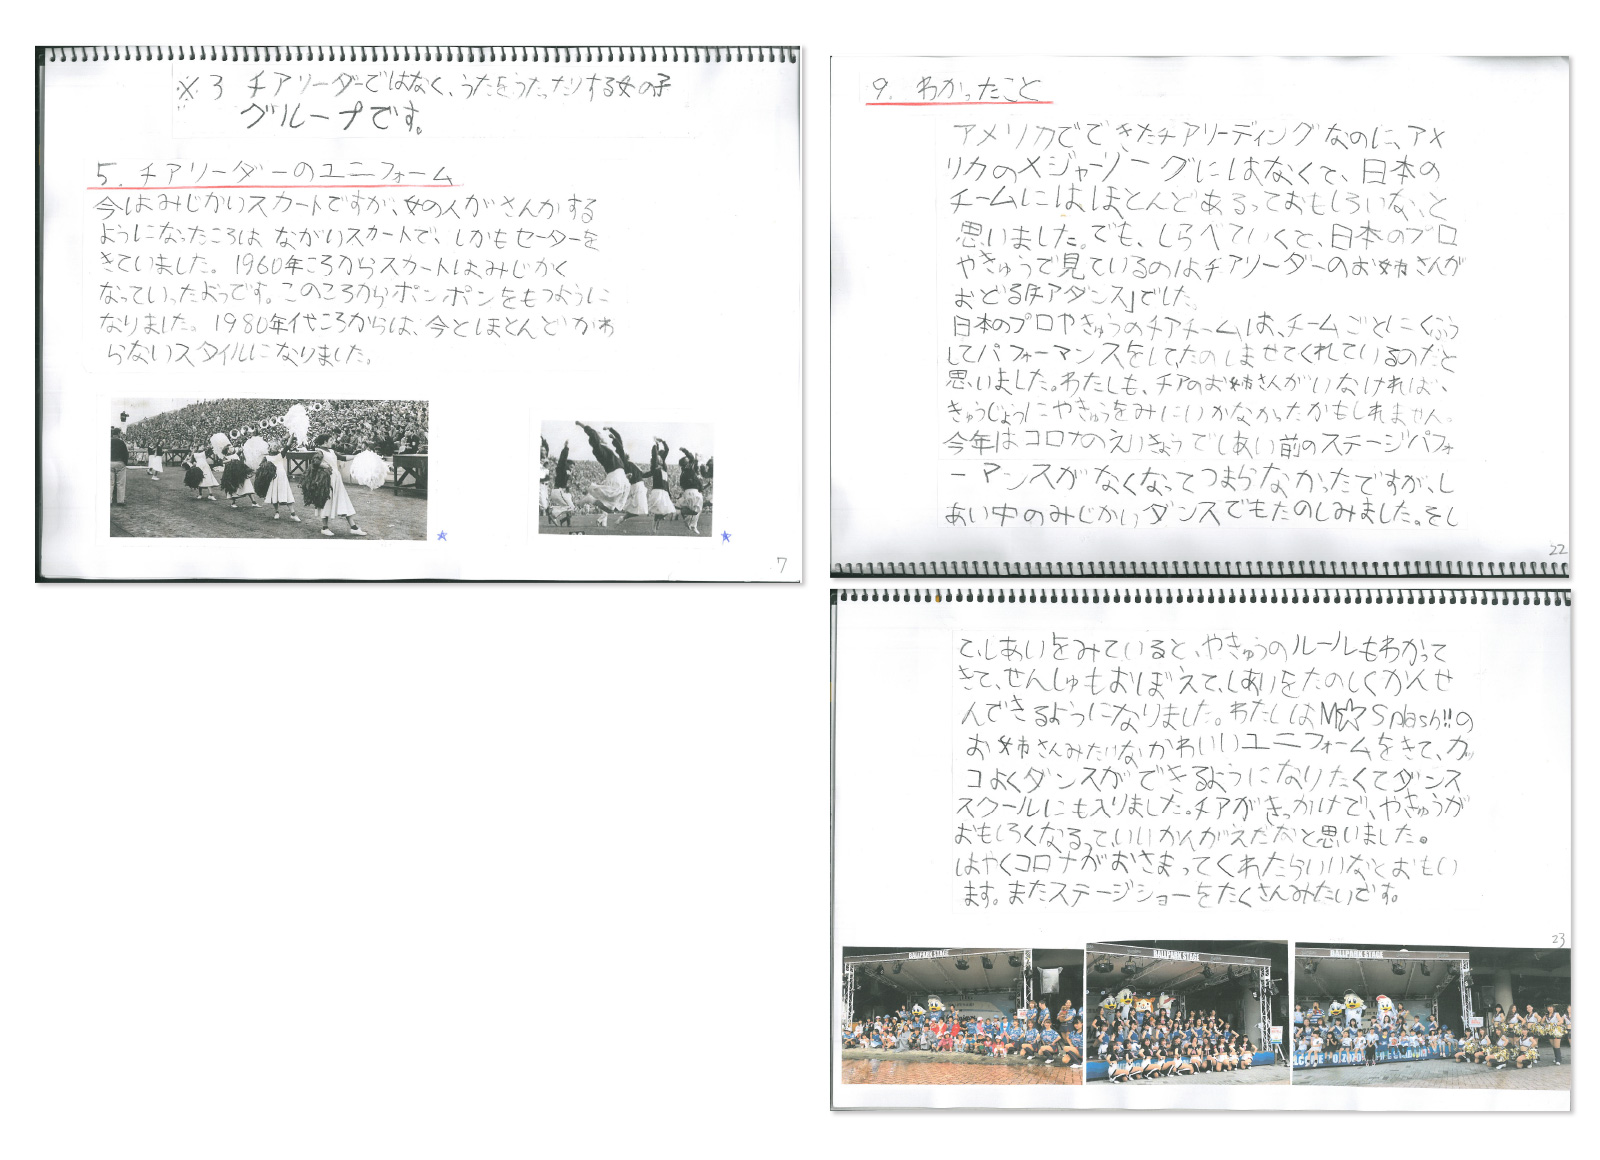 ※3 チアリーダーではなく、うたをうたったりする女の子
グループです。
5. チアリーダーのユニフォーム
今はみじかいスカートですが、女の人がさんかする
ようになったころは ながいスカートで、しかもセーターを
きていました。1960年ころからスカートはみじかく
なっていったようです。このころからポンポンをもつように
なりました。1980年代ころからは、今とほとんどかわ
らないスタイルになりました。
7
9. わかったこと
アメリカでできたチアリーディングなのに、アメ
リカのメジャーリーグにはなくて、日本の
チームにはほとんどあるっておもしろいな、と
思いました。でも、しらべていくと、日本のプロ
やきゅうで見ているのはチアリーダーのお姉さんが
おどる「チアダンス」でした。
日本のプロやきゅうのチアチームは、チームごとにくふう
してパフォーマンスをして、たのしませてくれているのだと
思いました。わたしも、チアのお姉さんがいなければ、
きゅうじょうにやきゅうをみにいかなかったかもしれません。
今年はコロナのえいきょうでしあい前のステージパフォ
ーマンスがなくなってつまらなかったですが、し
あい中のみじかいダンスでもたのしみました。そし
22
て、しあいをみていると、やきゅうのルールもわかって
きて、せんしゅもおぼえて、しあいをたのしくかんせ
んできるようになりました。わたしはM☆Splash!!の
お姉さんみたいなかわいいユニフォームをきて、カッ
コよくダンスができるようになりたくてダンス
スクールにも入りました。チアがきっかけで、やきゅうが
おもしろくなるって、いいかんがえだなと思いました。
はやくコロナがおさまってくれたらいいなとおもい
ます。またステージショーをたくさんみたいです。
23
BALLPARK STAGE
BALLPARK STAGE
BALLPARK STAGE